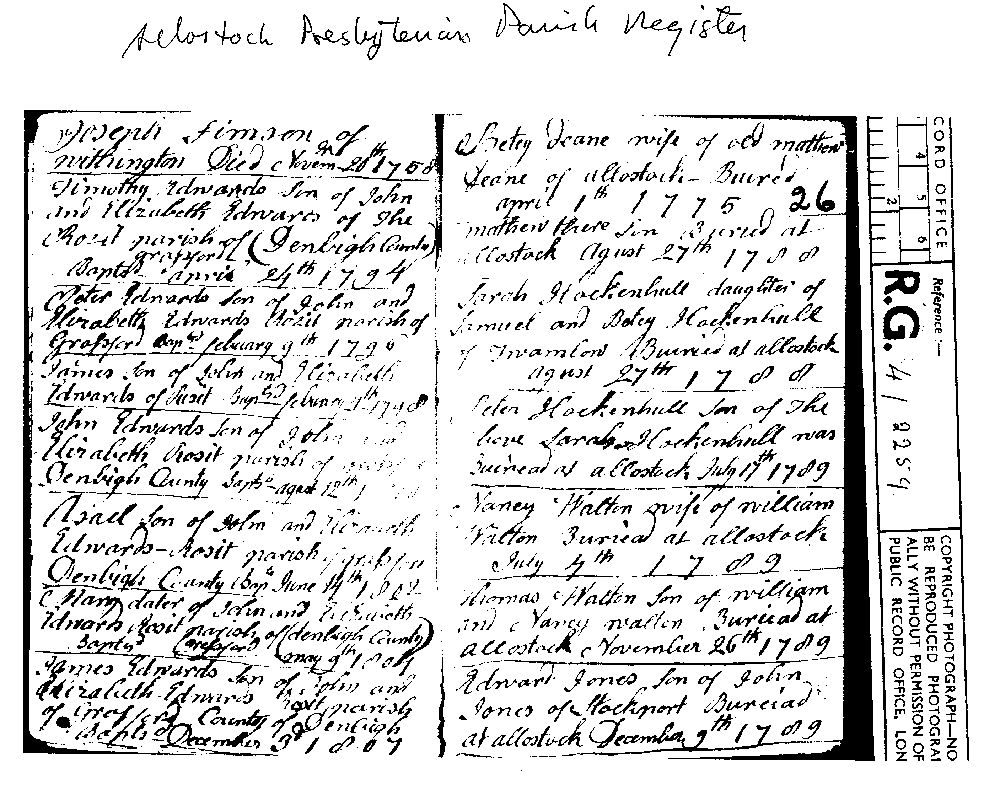 Allostock Presbyterian Parish Register
Joseph Simson of
withington Died Novem 28th 1758
Timothy Edwards Son of John
and Elizabeth Edwards of The
Rosit parish of (Denbigh County)
grasford
Bapts april 24th 1794
Peter Edwards Son of John and
Elizabeth Edwards Rosit parish of
Grasford Bapsd february 9th 179
James Son of John and Elizabeth
Edwards of Rosit Bapsd february 1798
John Edwards Son of John and
Elizabeth Rosit parish of
Denbigh County Baptsd agust 12th 1
Son of John and Elizabeth
Edwards - Rosit parish
Denbigh County Bap June 14th 1802
Mary dater of John and Elizabeth
Edwards Rosit parish of (denbigh County)
Bapts Grasford may 9th 1804
James Edwards Son of John and
Elizabeth Edwards Rosit parish
of Grasford County of Denbigh
Bapts December 3d 1807
Betey Deane wife of old mathew
Deane of allostock - Buired
april 1th 1775 26
mathew there Son Buried at
allostock Agust 27th 1788
Sarah Hockenhull daughter of
Samuel and Betey Hockenhull
of Twamlow Buiried at allostock
agust 27th 1788
Peter Hockenhull Son of The
bove Sarah Hockenhull was
Buiriead at allostock July 17th 1789
Nancy Walton wife of william
Walton Buriead at allostock
July 4th 1789
Thomas Walton Son of william
and Nancy walton Buriead at
allostock November 26th 1789
Edwart Jones Son of John
Jones of Stockport Bureiad
at allostock December 9th 1789
CORD OFFICE
2
4
5
6
Reference :-
R.G. 4/2259
COPYRIGHT PHOTOGRAPH—NO
BE REPRODUCED PHOTOGRA
ALLY WITHOUT PERMISSION OF
PUBLIC RECORD OFFICE, LON